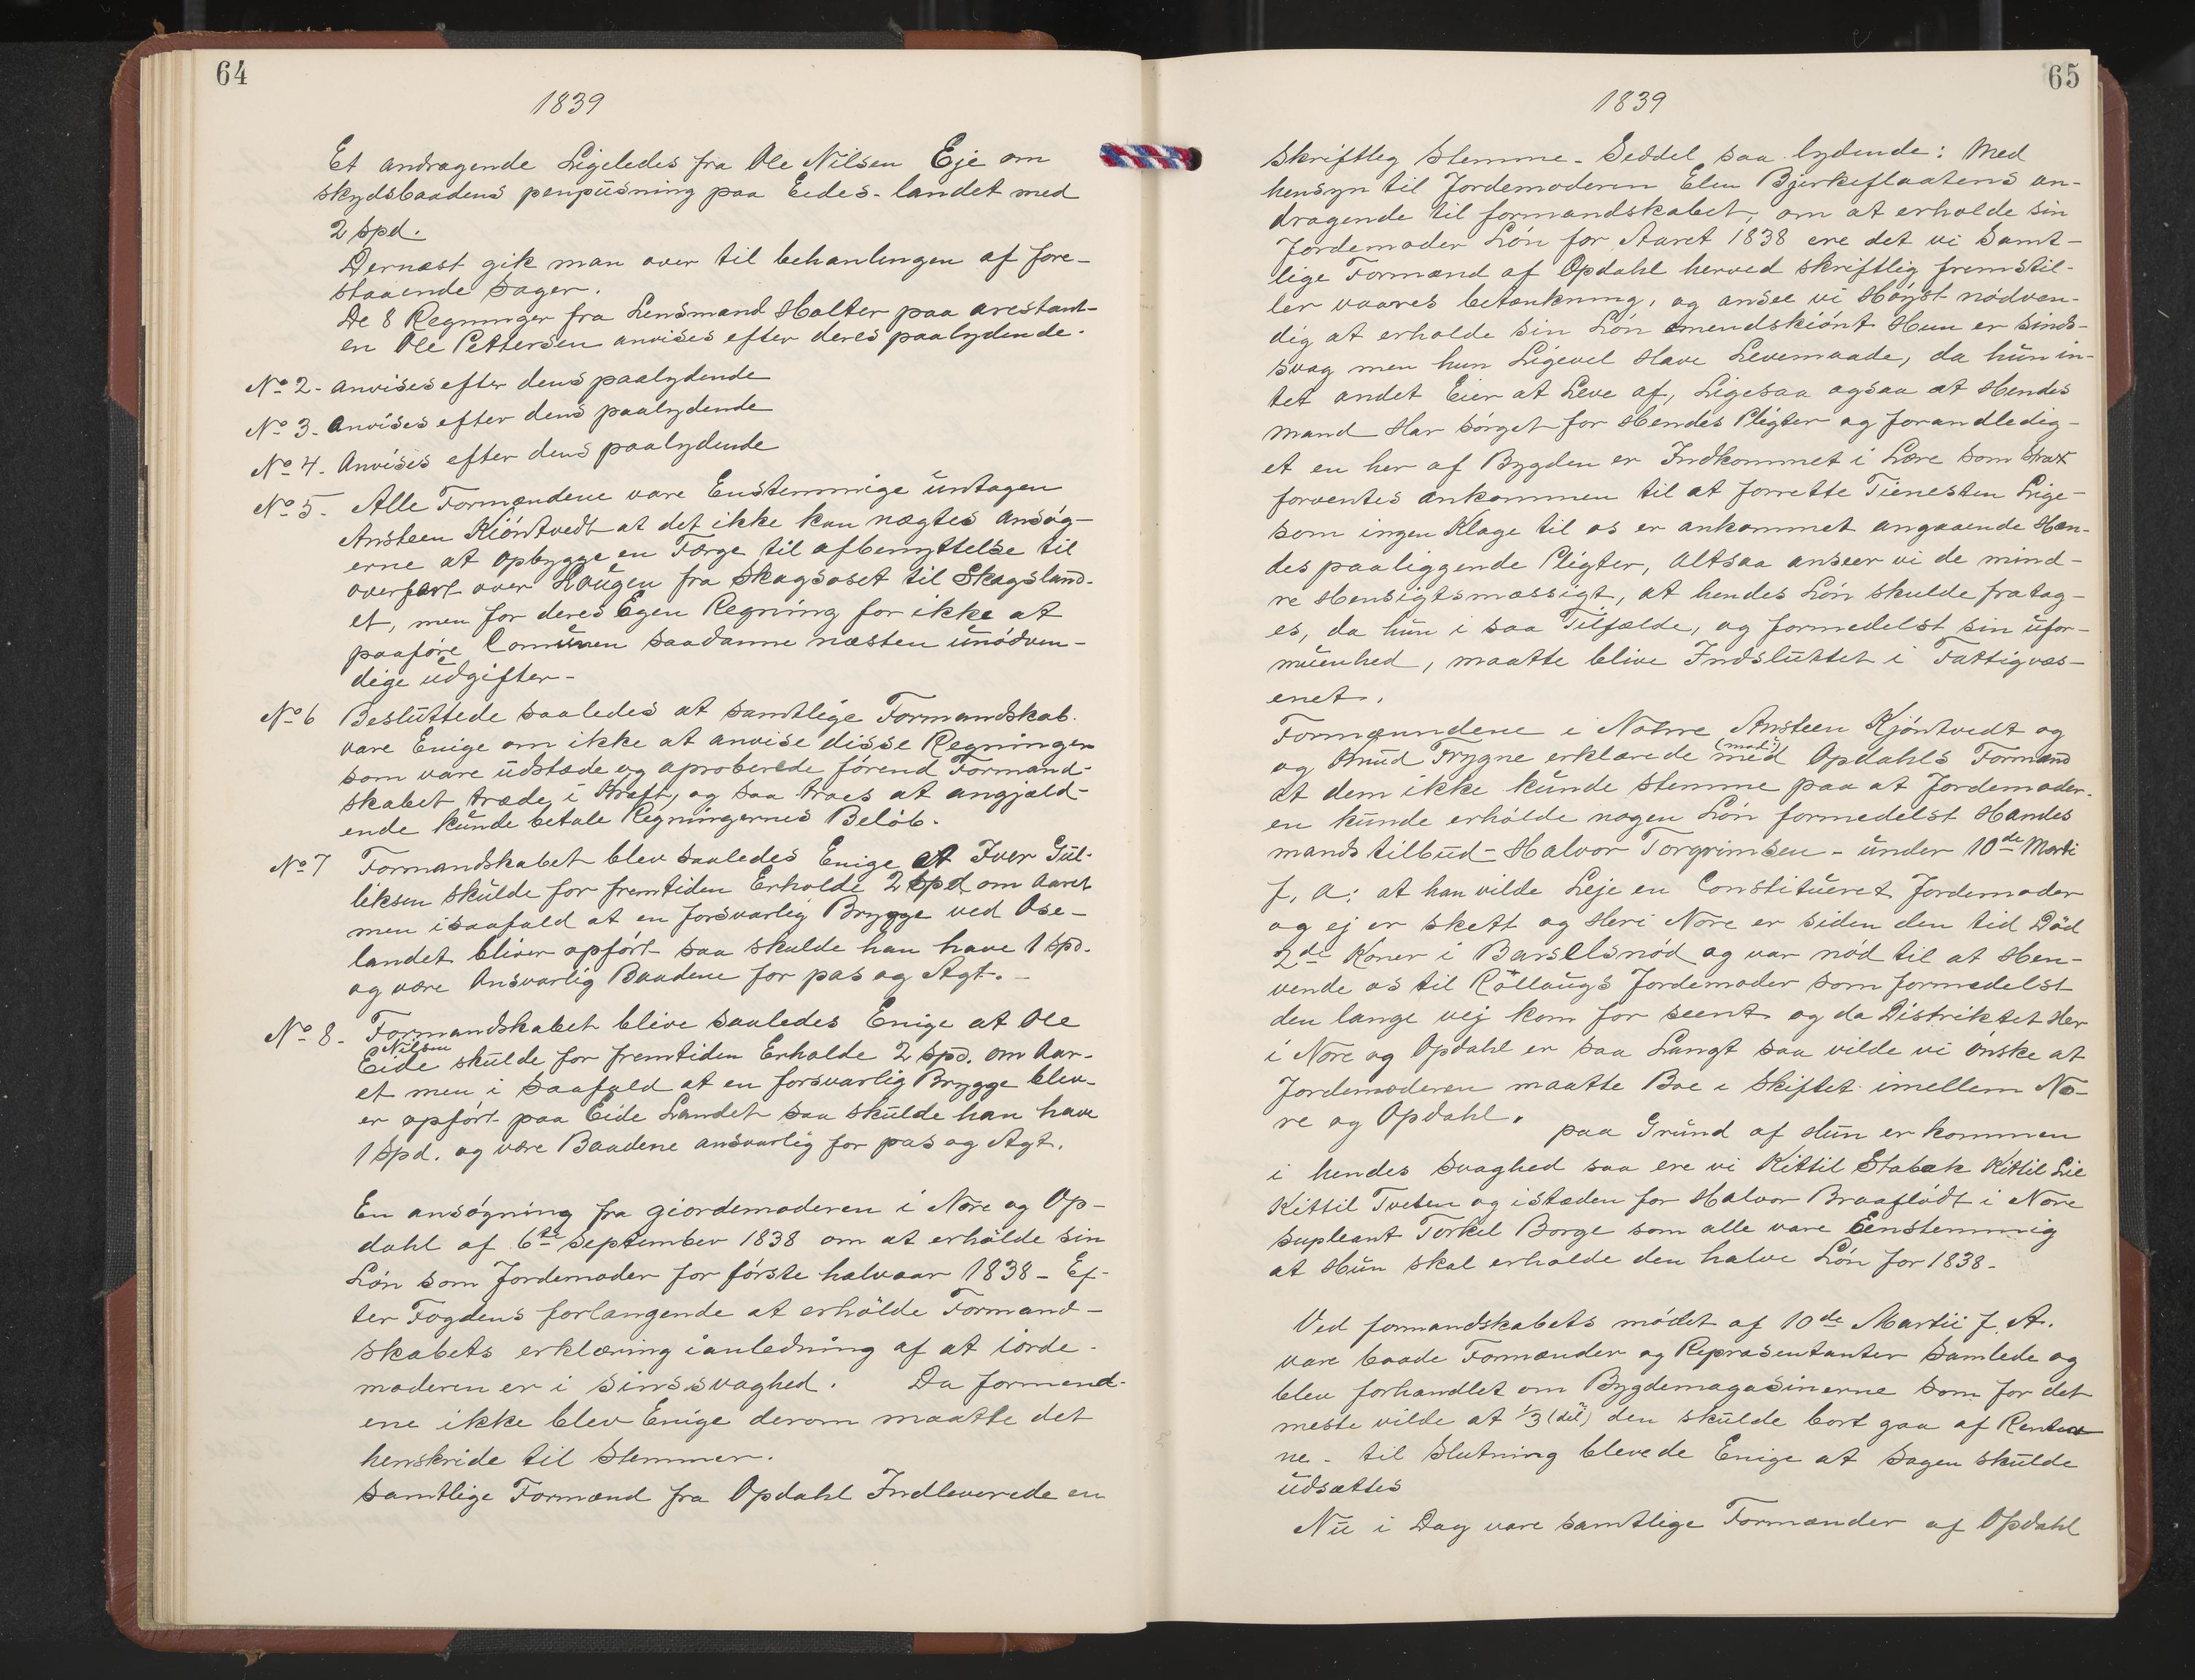 64
1839
Et andragende Ligeledes fra Ole Nilsen Eje om
skydsbaadens penpüsning paa Eedes-landet med
2 spd.
Dernæst gik man over til behanlingen af fore-
staaende sager.
De 8 Regninger fra Lensmand Holter paa arestant-
en Ole Pettersen anvises efter deres paalydende.
No 2 - anvises efter dens paalydende
No 3 - Anvises efter dens paalydende
No 4. Anvises efter dens paalydende
No 5 - Alle Formændene vare Enstemmige üntagen
Ansteen Kjöntvedt at det ikke kan nægtes ansög-
erne at opbygge en Færge til afbenyttelse til
overfart over Lougen fra Skagsoset til Skagsland-
et, men for deres Egen Regning for ikke at
paaföre Comünen saadanne næsten ünödven-
dige üdgifter-
No 6 Beslüttede saaledes at samtlige Formandskab.
vare Enige om ikke at anvise disse Regninger
som vare üdstæde og aproberede förend Formand-
skabet træde i Kraft, og saa troes at angjæld-
ende künde betale Regningernes Belöb.
No 7 Formandskabet blev saaledes Enige at Iver Gül-
liksen skülde for fremtiden Erholde 2 spd om aaret
men isaafald at en forsvarlig Brygge ved Ose-
landet bliver opfört saa skulde han have 1 spd.
og være Ansvarlig Baadene for pas og Agt. -
No 8 - Formandskabet blive saaledes Enige at Ole
Nilsen
Eide skülde for fremtiden Erholde 2 spd. om Aar-
et men i saafald at en forsvarlig Brygge blev-
er opfört paa Eide Landet saa skülde han have
1 spd. og være Baadene ansvarlig for pas og Agt.
En ansögning fra giordemoderen i Nore og Op-
dahl af 6te September 1838 om at erhölde sin
Lön som Jordemoder for förste halvaar 1838 - Ef-
ter Fogdens forlangende at erhölde Formand-
skabets erklæring i anledning af at iorde-
moderen er i sinssvaghed. Da formænd-
ene ikke blev Enige derom maatte det
henskride til Stemmer.
Samtlige Formænd fra Opdahl Indleverede en
65
1839
skriftleg stemme-Seddel saa lydende: Med
hensyn til Jordemoderen Elen Bjerkeflaatens an-
dragende til formandskabet, om at erholde sin
Jordemoder Lön for Aaret 1838 ere det vi Samt-
lige Formænd af Opdahl herved skriftlig fremstil-
ler vaares betænkning, og ansee vi Höyst nödven-
dig at erholde sin Lön omendskiönt Hun er sinds-
svag men hun Ligevel Have Levemaade, da hün in-
tet andet Eier at Leve af, Ligesaa ogsaa at Hendes
mand Har sörget for Hendes Pligter og forandledig-
et en her af Bygden er Indkommet i Lære som strax
forventes ankommen til at forrette Tienesten Lige-
som ingen Klage til os er ankommet angaaende Hen-
des paaliggende Pligter, altsaa anseer vi de mind-
re Hensigtsmæssigt, at hendes Lön skulde fratag-
es, da hün i saa Tilfælde, og formedelst sin üfor-
muenhed, maatte blive Indslüttet i Fattigvæs-
enet.
Formændene i Nohre Ansteen Kjöntvedt og
og Knüd Frygne erklærede med (mod?) Opdahls Formænd
at dem ikke künde stemme paa at Jordemoder-
en künde erhölde nogen Lön formedelst Handes
mands tilbüd - Halvor Torgrimsen - ünder 10de Marti
f. a: at han vilde Leje en Constitüeret Jordemoder
og ej er skett og Heri Nore er siden den tid Död
2de Koner i Barselsnöd og var nöd til at Hen-
vende os til Röllaugs Jordemoder som formedelst
den lange vej kom for seent og da Distriktet Her
i Nore og Opdahl er saa Langt saa vilde vi önske at
Jordemoderen maatte Boe i Skiftet imellem No-
re og Opdahl.
paa Gründ af Hün er kommen
i hendes Svaghed saa ere vi Kittil Stabæk Kittil Lie
Kittil Tveten og istæden for Halvor Braaflödt i Nore
supleant Torkel Borge som alle vare Eenstemmig
at Hün skal erholde den halve Lön for 1838-
Ved formandskabets mödet af 10de Martii f. A.
vare baade Formænder og Repræsentanter Samlede og
blev forhandlet om Bygdemagasinerne som for det
meste vilde at 1/3 (del) den skülde bort gaa af Renter
ne - til Slutning bleve de Enige at Sagen skülde
üdsættes
Nü i Dag vare samtlige Formænder af Opdahl